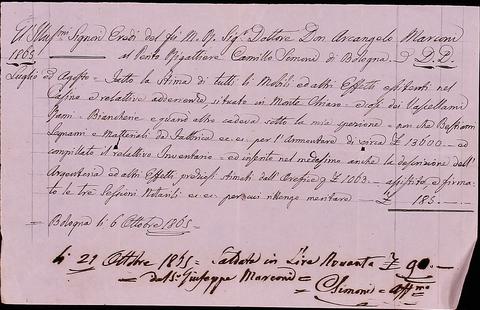 Gl' Illus.mi Signori Eredi del fù N. Op. Sig.r Dottore Don Arcangelo Marconi
1865 al Perito Rigattiere Camillo Simoni di Bologna D. D.
Luglio ed Agosto = Fatta la Stima di tutti li Mobili ed altri Effetti esistenti nel
Casino e relattive adiacenze situato in Monte Chiaro = così dei Vasellami
Rami = Biancherie e quand'altro cadeva sotto la mia ispezione = non che Bestiami
Legnami e Materiali da Fabbrica ec. ec. per l'Ammontare di circa £ 13000 = ed
compillato il relattivo Inventario = ed inserite nel medesimo anche la descrizione dell'
Argenteria ed altri Effetti preziosi stimati dall'Orefice £ 1063. — assistito, e firma-
to le tre Sessioni Notarili ec. ec. per cui ritengo meritare £ 185. —
= Bologna li 6 Ottobre 1865 =
li 21 Ottobre 1865 = Saldata in Lire Novanta £ 90. —
= da S.r Giuseppe Marconi = C. Simoni = Aff.mo